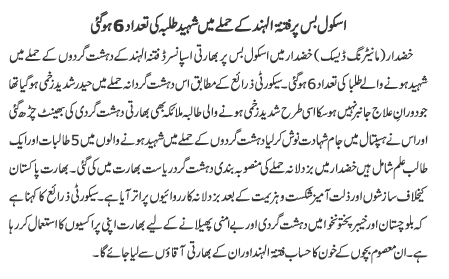 اسکول بس پر فتنۃ الہند کے حملے میں شہید طلبہ کی تعداد 6 ہوگئی
خضدار (مانیٹرنگ ڈیسک) خضدار میں اسکول بس پر بھارتی اسپانسرڈ فتنۃ الہند کے دہشت گردوں کے حملے میں
شہید ہونے والے طلبا کی تعداد 6 ہوگئی۔ سیکورٹی ذرائع کے مطابق اس دہشت گردانہ حملے میں حیدر شدید زخمی ہوگیا تھا
جو دوران علاج جانبر نہیں ہوسکا اسی طرح شدید زخمی ہونے والی طالبہ ملائکہ بھی بھارتی دہشت گردی کی بھینٹ چڑھ گئی
اور اس نے ہسپتال میں جام شہادت نوش کرلیا دہشت گردی کے حملے میں شہید ہونے والوں میں 5 طالبات اور ایک
طالب علم شامل ہیں خضدار میں بزدلانہ حملے کی منصوبہ بندی دہشت گرد ریاست بھارت میں کی گئی۔ بھارت پاکستان
کیخلاف سازشوں اور ذلت آمیز شکست و ہزیمت کے بعد بزدلانہ کارروائیوں پر اتر آیا ہے۔ سیکورٹی ذرائع کا کہنا ہے
کہ بلوچستان اور خیبر پختونخوا میں دہشت گردی اور بے امنی پھیلانے کے لیے بھارت اپنی پراکسیوں کا استعمال کر رہا
ہے۔ ان معصوم بچوں کے خون کا حساب فتنۃ الہند اور ان کے بھارتی آقاؤں سے لیا جائے گا۔